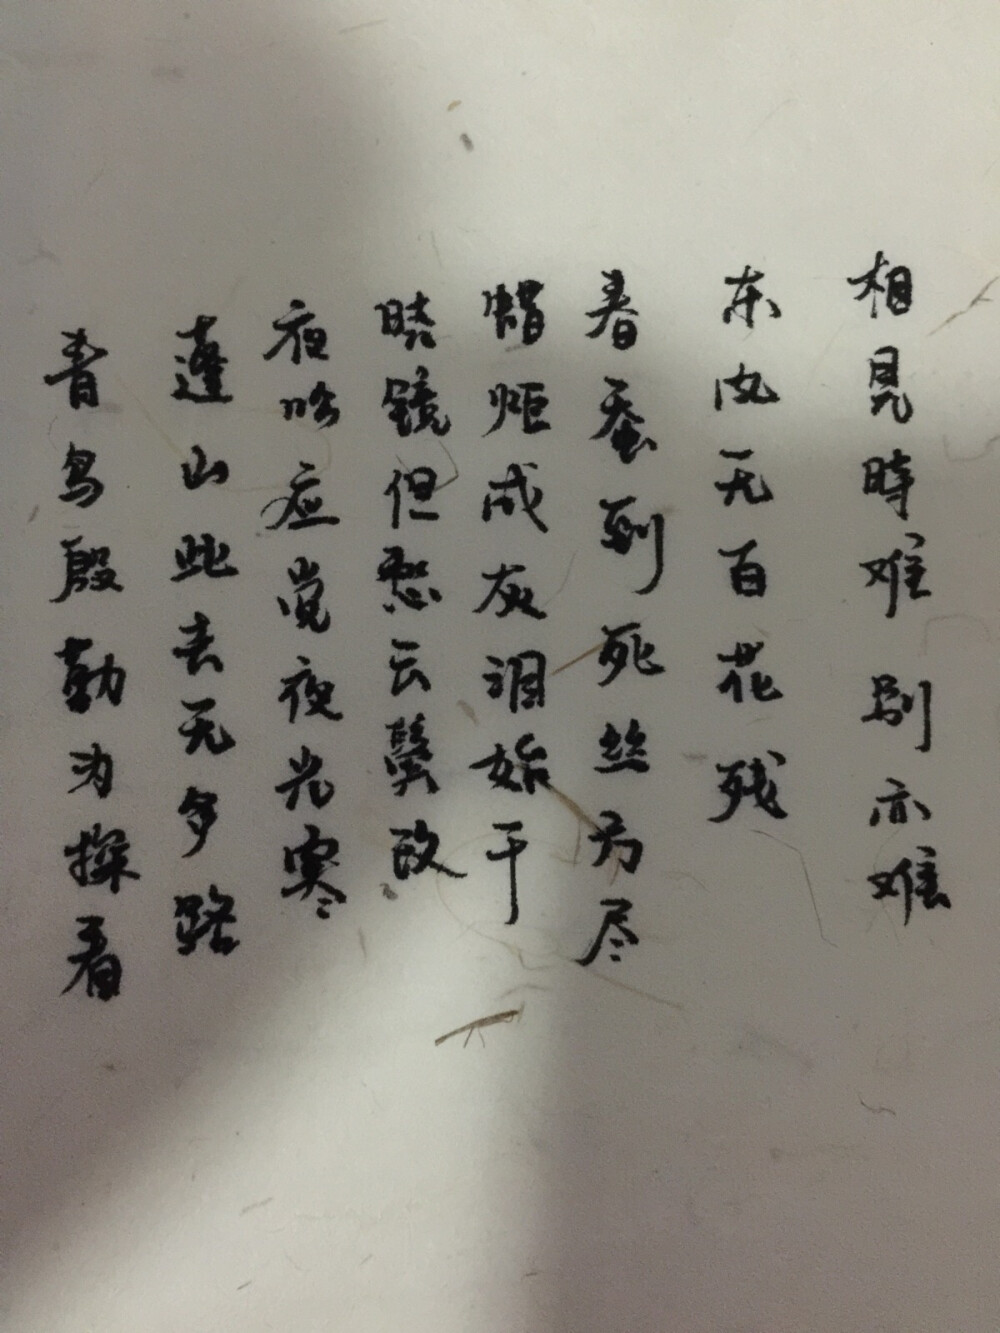 相見時难别亦难
东风无百花残
春蚕到死丝方尽
蜡炬成灰泪始干
晓镜但愁云鬓改
夜吟应觉夜光寒
蓬山此去无多路
青鸟殷勤为探看